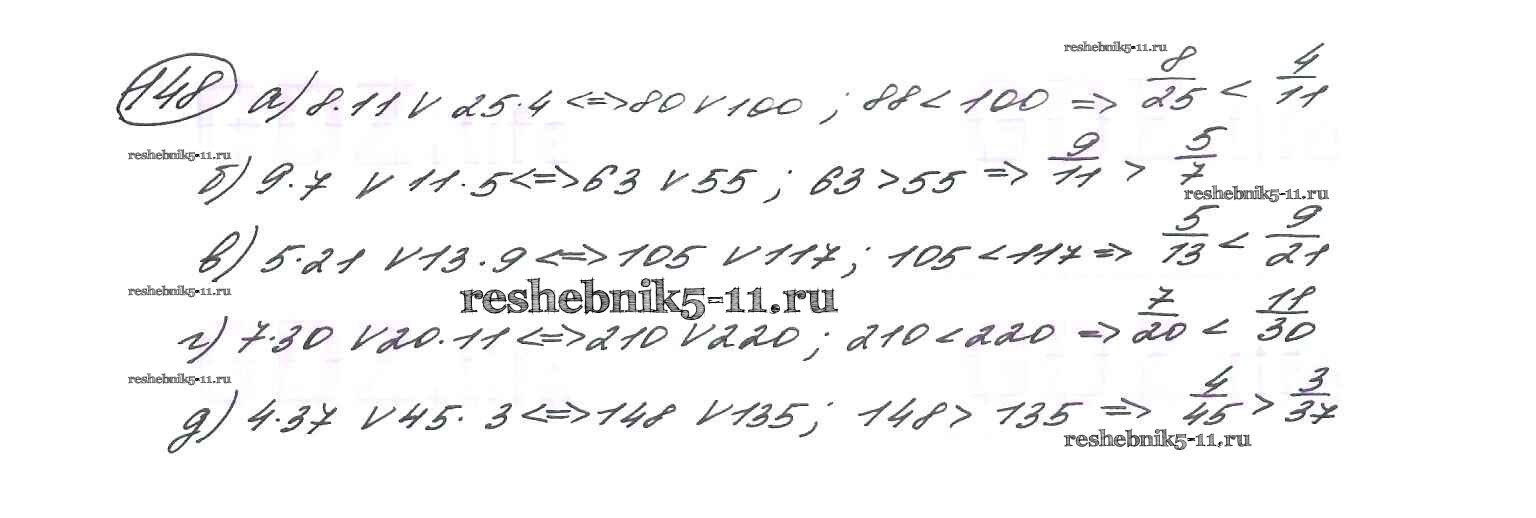 reshebnik5-11.ru
148 а) 8·11 ∨ 25·4 <=> 80 ∨ 100 ; 88 < 100 => 8/25 < 4/11
reshebnik5-11.ru
б) 9·7 ∨ 11·5 <=> 63 ∨ 55 ; 63 > 55 => 9/11 > 5/7
reshebnik5-11.ru
в) 5·21 ∨ 13·9 <=> 105 ∨ 117 ; 105 < 117 => 5/13 < 9/21
reshebnik5-11.ru
reshebnik5-11.ru
г) 7·30 ∨ 20·11 <=> 210 ∨ 220 ; 210 < 220 => 7/20 < 11/30
reshebnik5-11.ru
д) 4·37 ∨ 45·3 <=> 148 ∨ 135 ; 148 > 135 => 4/45 > 3/37
reshebnik5-11.ru